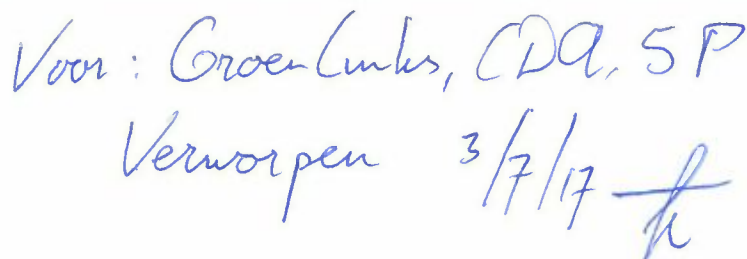 Voor: GroenLinks, CDA, SP
Verworpen 3/7/17